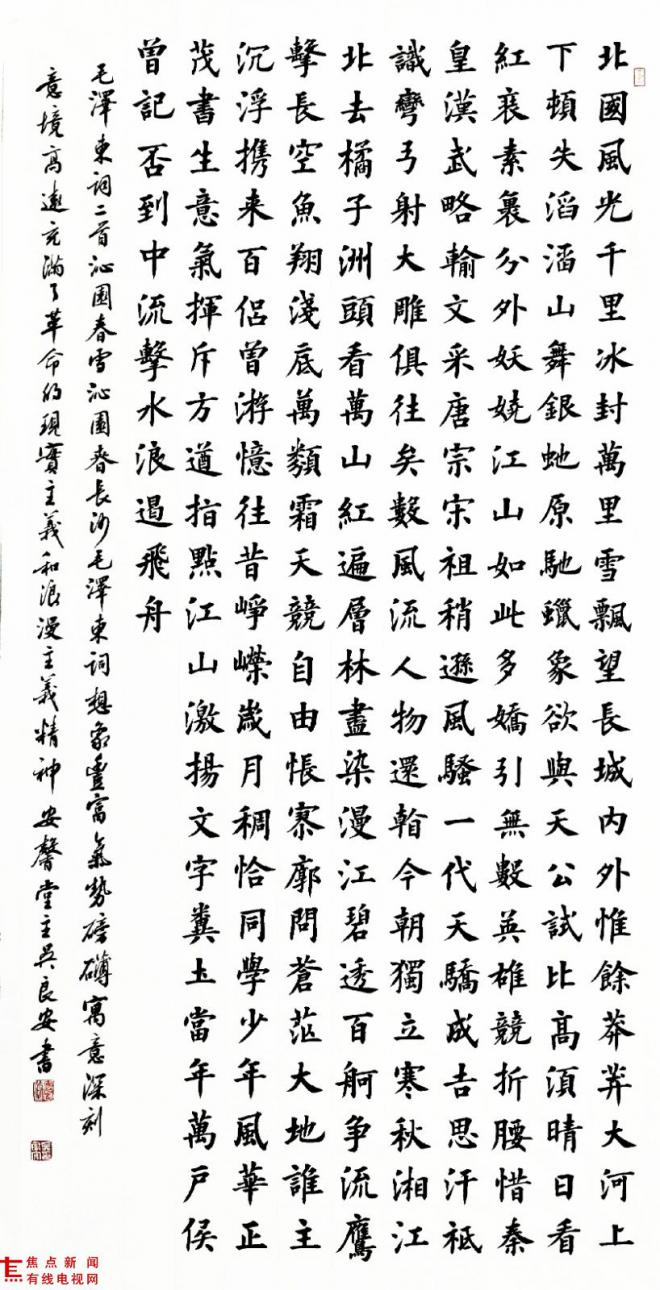 北國風光千里冰封萬里雪飄望長城内外惟餘莽莽大河上
下頓失滔滔山舞銀虵原馳蠟象欲與天公試比高須晴日看
紅裝素裹分外妖嬈江山如此多嬌引無數英雄競折腰惜秦
皇漢武略輸文采唐宗宋祖稍遜風騷一代天驕成吉思汗祗
識彎弓射大雕俱往矣數風流人物還看今朝獨立寒秋湘江
北去橘子洲頭看萬山紅遍層林盡染漫江碧透百舸争流鷹
擊長空魚翔淺底萬類霜天競自由悵寥廓問蒼茫大地誰主
沉浮携来百侣曾游憶往昔崢嶸歲月稠恰同學少年風華正
茂書生意氣揮斥方遒指點江山激揚文字糞土當年萬戶侯
曾記否到中流擊水浪遏飛舟
毛澤東詞二首沁園春雪沁園春長沙毛澤東詞想象豐富氣勢磅礴寓意深刻
意境高遠充滿了革命的現實主義和浪漫主義精神 安馨堂主吳良安書
焦点新闻
有线电视网